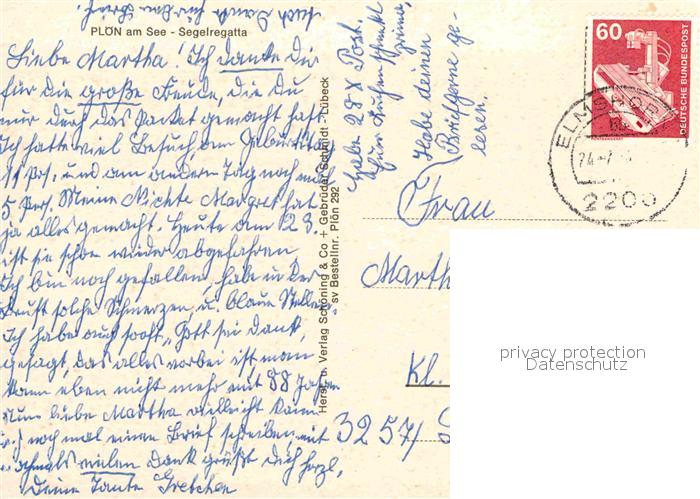 PLÖN am See - Segelregatta
Liebe Martha! Ich danke Dir
für die große Freude, die Du
mir durch das Packet gemacht hast.
Ich hatte viel Besuch, am Geburtstag
11 Prs. und am anderen Tag noch mal
5 Pers. Meine Nichte Margret hat
ja alles gemacht. Heute am 23.
ist sie schon wieder abgefahren
Ich bin noch gefallen, habe in der
Brust solche Schmerzen, u. blaue Stellen.
Ich habe auch sooft, "Gott sei Dank,
gesagt, das alles vorbei ist, man
kann eben nicht mehr mit 88 Jahren
Nun liebe Martha vielleicht kann
ich noch mal einen Brief schreiben, mit
nochmals vielen Dank grüßt Dich herzl.
Deine Tante Gretchen
Habe 28 x Post.
Euer Kuchen schmeckt
prima.
Habe deinen
Brief gerne ge-
lesen.
Herst. u. Verlag Schöning & Co + Gebrüder Schmidt - Lübeck
sv Bestellnr. Plön 292
60
DEUTSCHE BUNDESPOST
ELMSHORN
24.-7.
2200
Frau
Marth
Kl.
3257/
privacy protection
Datenschutz